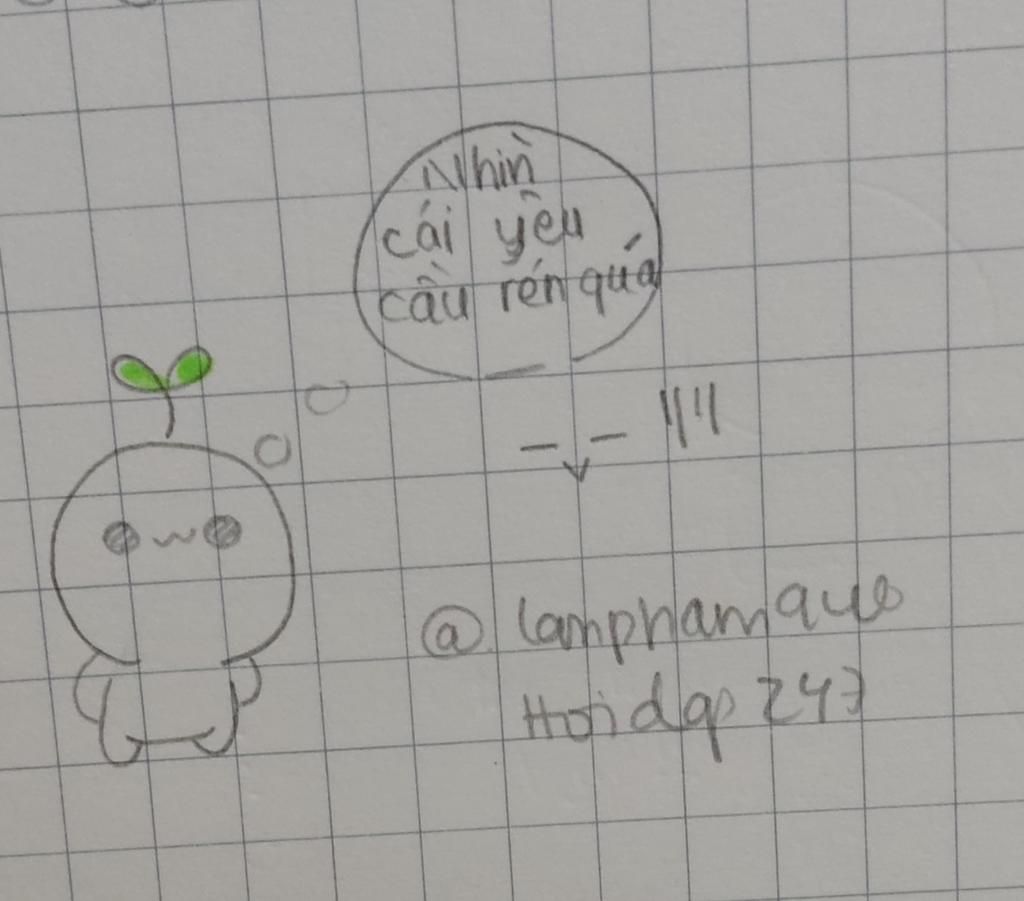 Nhìn
cái yêu
cầu rén quá
@lamphamque
Hoidap247